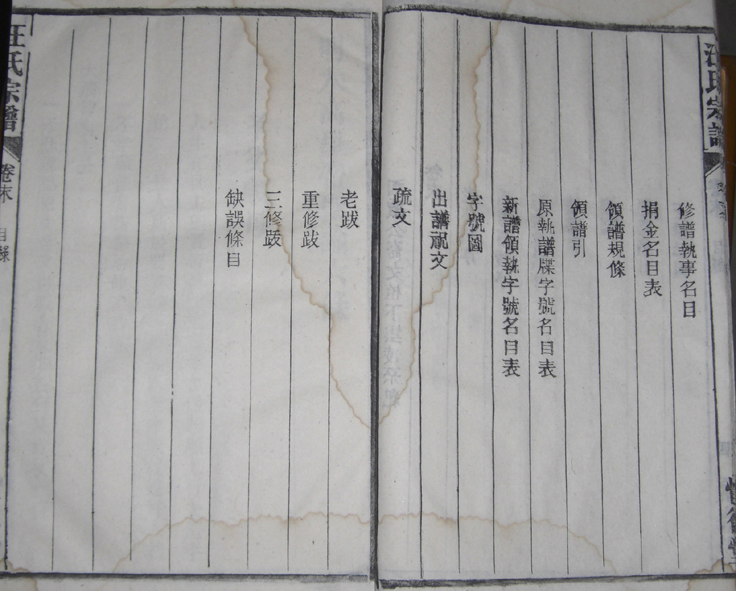 汪氏宗譜
修譜執事名目
捐金名目表
領譜規條
領譜引
原執譜牒字號名目表
新譜領執字號名目表
字號圖
出譜祝文
疏文
老跋
重修跋
三修跋
缺誤條目
汪氏宗譜
卷末
目錄